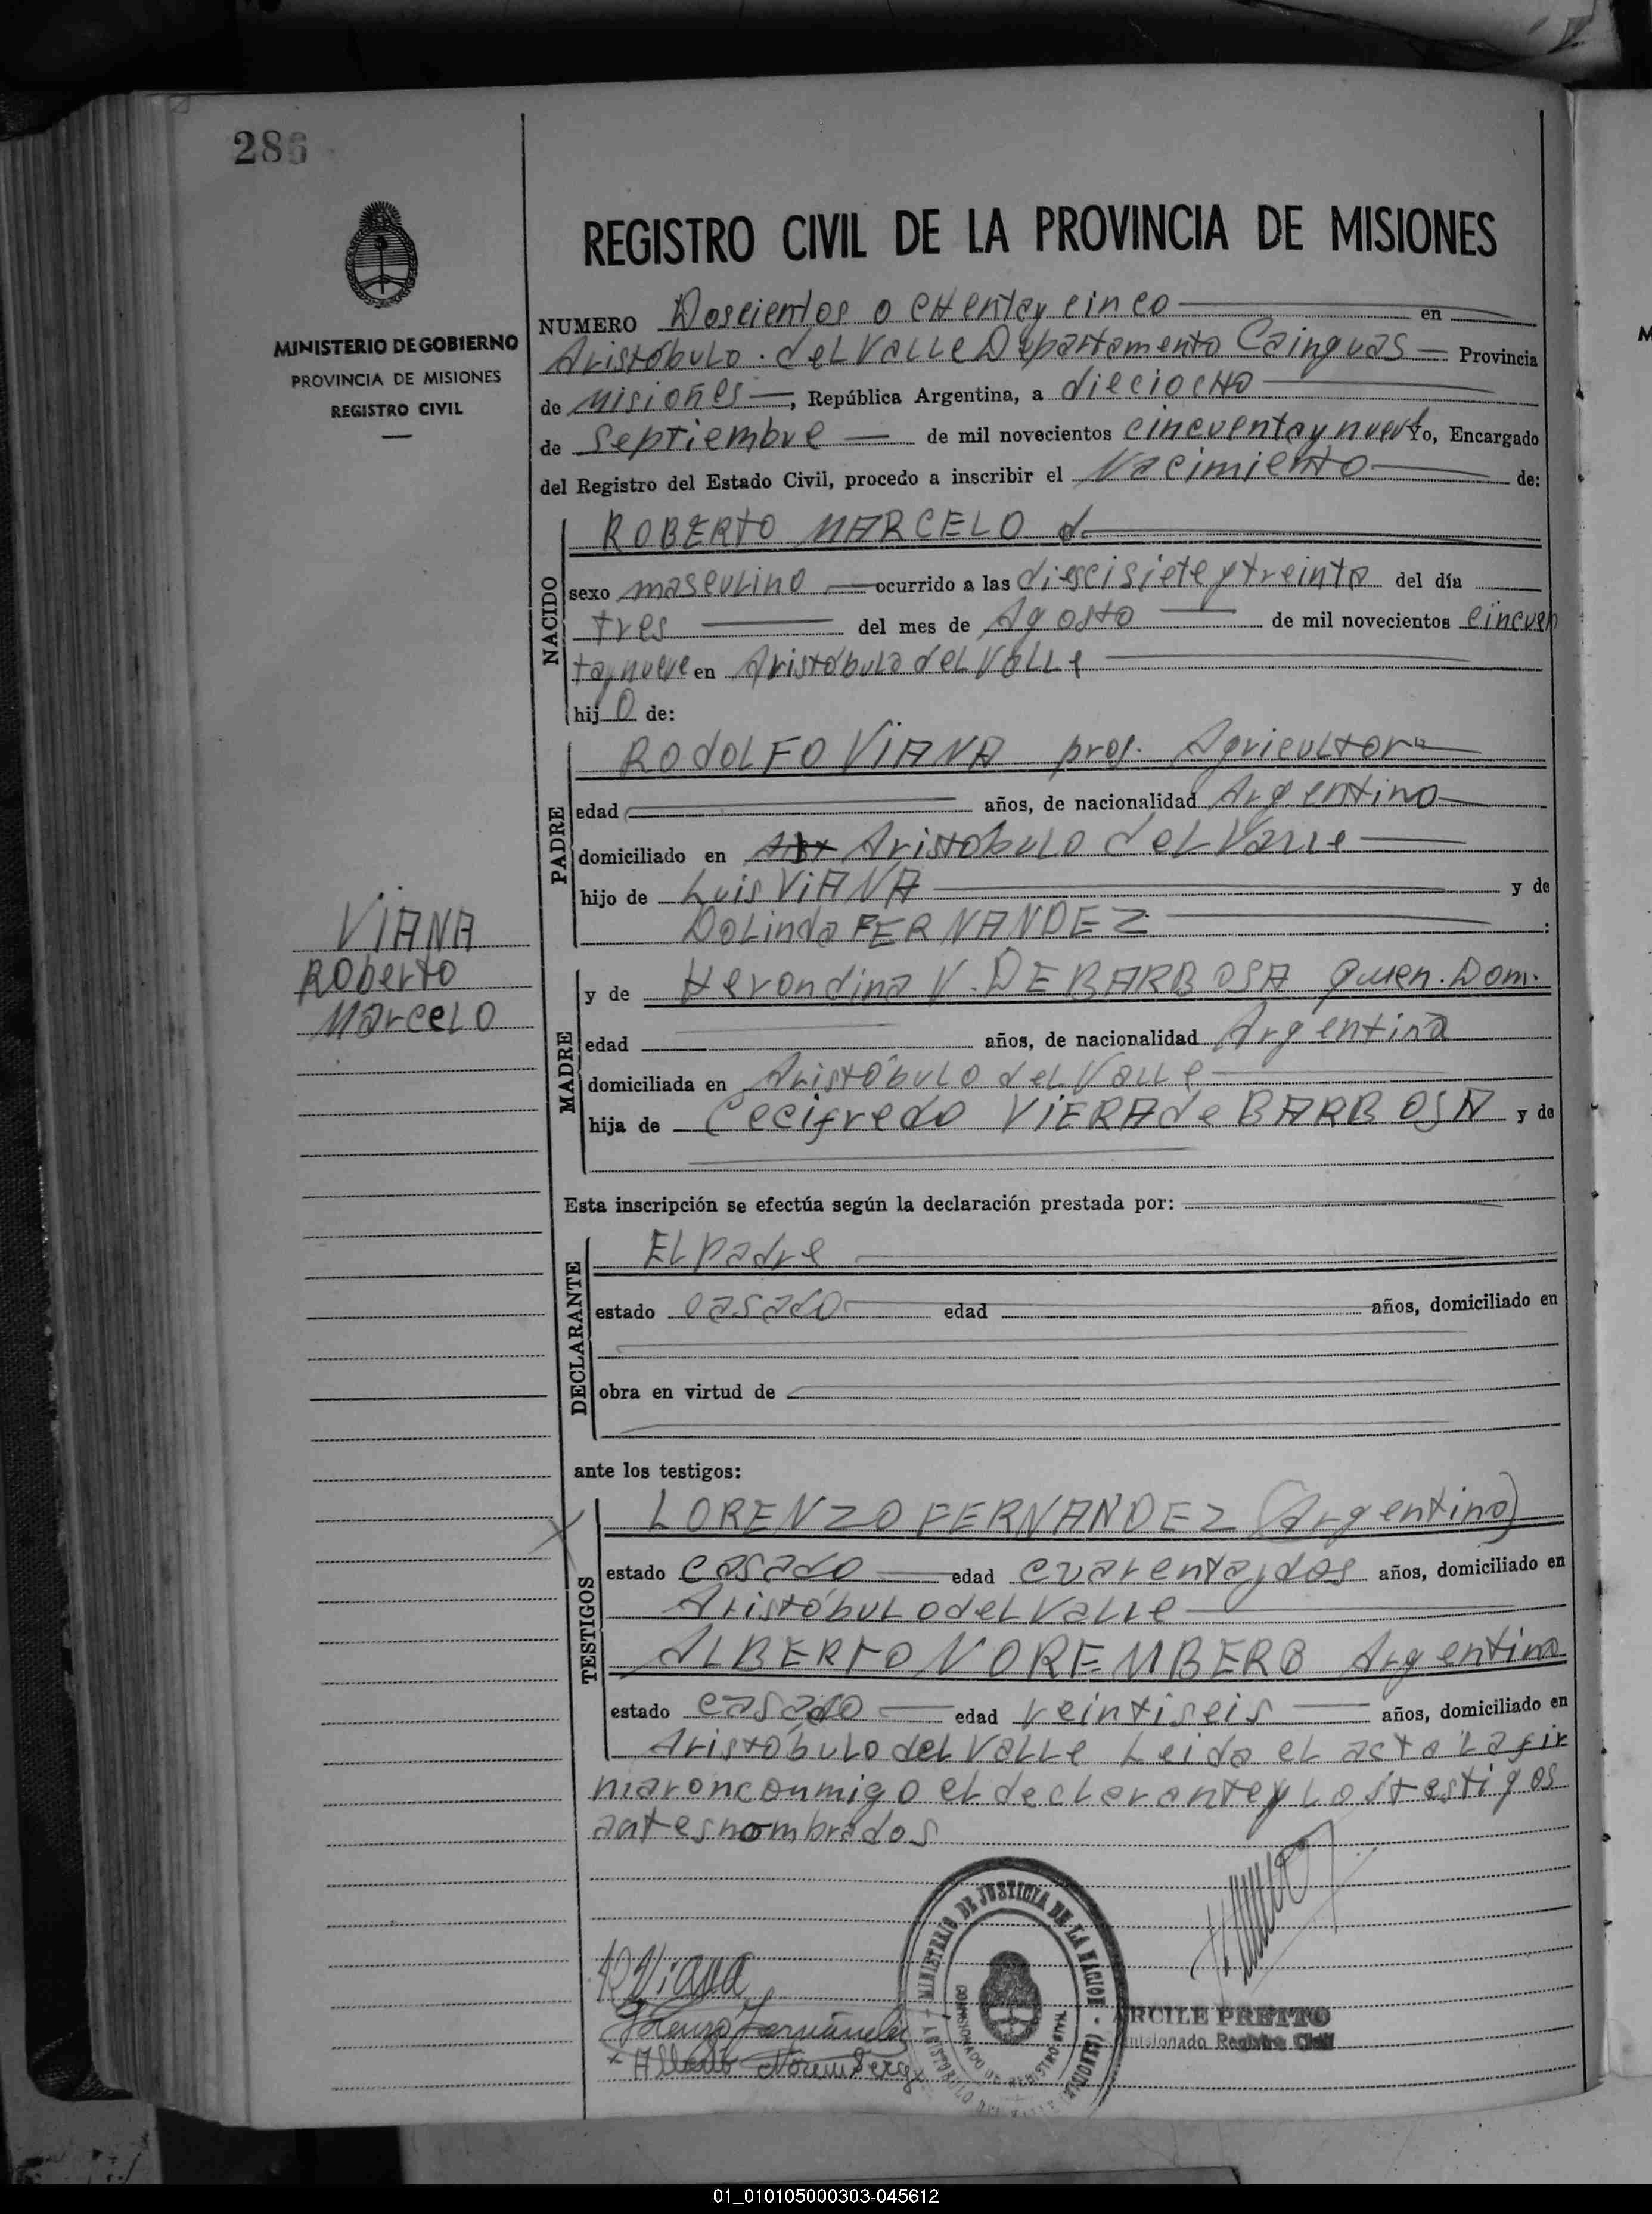 286
MINISTERIO DE GOBIERNO
PROVINCIA DE MISIONES
REGISTRO CIVIL
REGISTRO CIVIL DE LA PROVINCIA DE MISIONES
NUMERO Doscientos ochentay cinco en
Aristóbulo del Valle Departamento Cainguas Provincia
de Misiones, República Argentina, a dieciocho
de Septiembre de mil novecientos cincuentay nueve yo, Encargado
del Registro del Estado Civil, procedo a inscribir el Nacimiento de:
NACIDO
ROBERTO MARCELO
sexo masculino ocurrido a las diescisiete y treinta del día
tres del mes de Agosto de mil novecientos cincuen
tay nueve en Aristóbulo del Valle
hijo de:
PADRE
RODOLFO VIANA prof. Agricultor
edad años, de nacionalidad Argentino
domiciliado en Aristóbulo del Valle
hijo de Luis VIANA y de
Dolinda FERNANDEZ :
VIANA
Roberto
Marcelo
MADRE
y de Herondina V. DE BARBOSA Quen. Dom.
edad años, de nacionalidad Argentina
domiciliada en Aristóbulo del Valle
hija de Cecifredo VIERA de BARBOSA y de
Esta inscripción se efectúa según la declaración prestada por:
DECLARANTE
El padre
estado casado edad años, domiciliado en
obra en virtud de
ante los testigos:
TESTIGOS
LORENZO FERNANDEZ (Argentino)
estado casado edad cuarentaydos años, domiciliado en
Aristóbulo del Valle
ALBERTO NOREMBERG Argentino
estado casado edad veintiseis años, domiciliado en
Aristóbulo del Valle Leida el acta la fir
maron conmigo el declarante y los testigos
antes nombrados
R Viana
Lorenzo Fernández
Alberto Noremberg
MINISTERIO DE JUSTICIA DE LA NACION
COMISIONADO DE REGISTRO CIVIL
ARISTOBULO DEL VALLE (MISIONES)
RCILE PRETTO
misionado Registro Civil
01_010105000303-045612